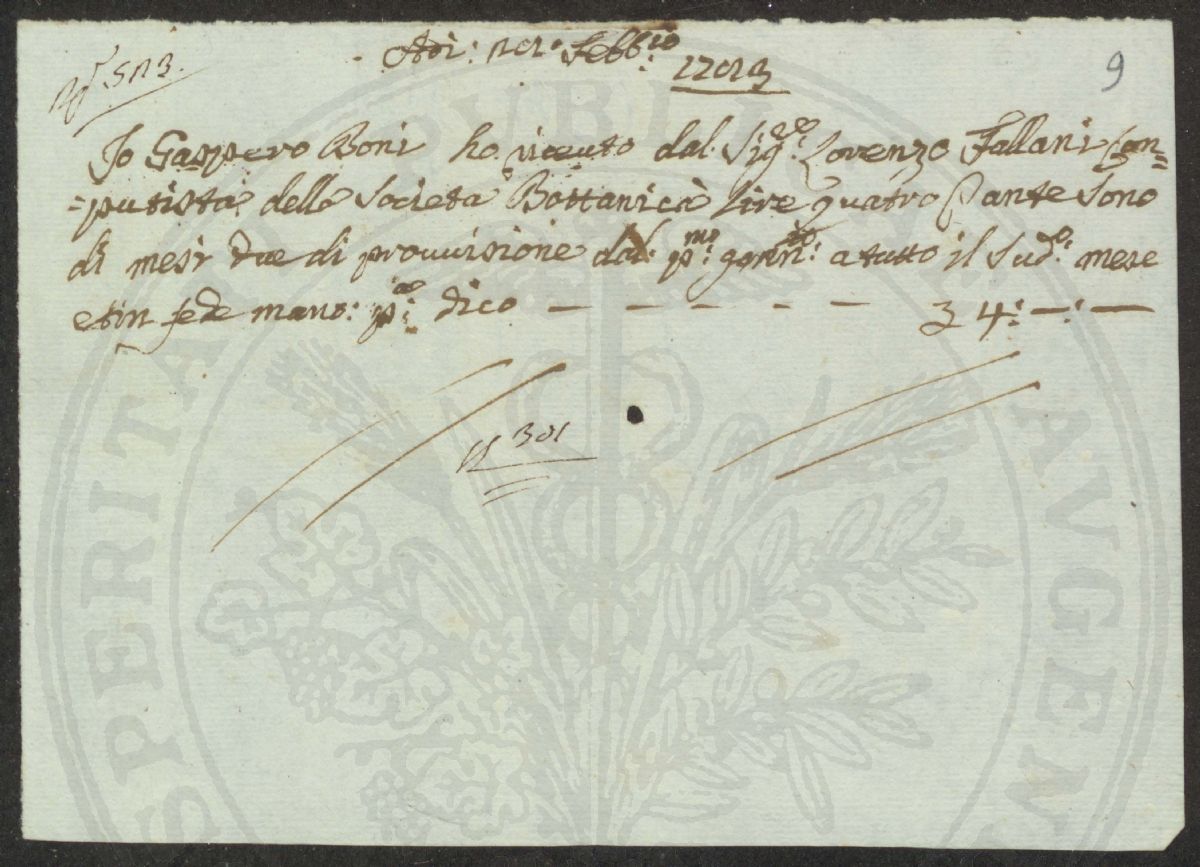 Adi: Febb:io
9
Io Gaspero Boni ho riceuto dal. Sig:re Lorenzo Fallani Con=
=putista della Società Bottanicà lire quatro Pante Sono
di mesi due di prouuisione dal: p:mo genn:io a tutto il Sud:o mese
et in fede mano: p:a dico — — — — — 4:—:—
n 301
PERITATI PVBLICAE AVGEN